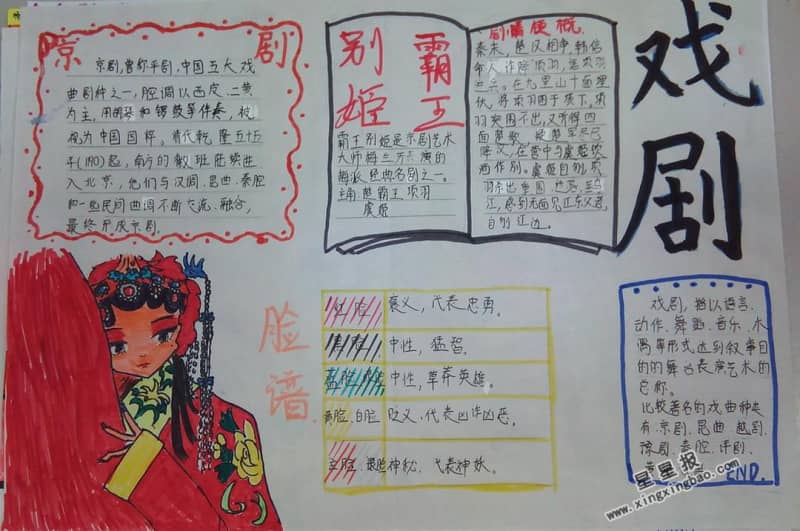 京剧
京剧,曾称平剧,中国五大戏
曲剧种之一,腔调以西皮、二黄
为主,用胡琴和锣鼓等伴奏,被
视为中国国粹,清代乾隆五十五
年(1790)起,南方的徽班陆续进
入北京,他们与汉调、昆曲、秦腔
和一些民间曲调不断交流、融合,
最终形成京剧.
霸王
别姬
霸王别姬是京剧艺术
大师梅兰芳表演的
梅派经典名剧之一。
主角:楚霸王项羽
虞姬
剧情梗概.
秦末,楚汉相争,韩信
命人诈降项羽
在九里山十面埋
伏,将项羽困于垓下,项
羽突围不出,又听得四
面楚歌
在营中与虞姬饮
酒作别。虞姬自刎,项
江,感到无面见江东父老,
自刎江边。
戏剧
脸谱
红脸
褒义,代表忠勇。
黑脸
中性,猛智.
蓝脸 绿脸
中性,草莽英雄。
黄脸、白脸
贬义、代表凶诈凶恶.
金脸、银脸
神秘、代表神妖。
戏剧,指以语言、
动作、舞蹈、音乐、木
偶等形式达到叙事目
的的舞台表演艺术的
总称.
比较著名的戏曲种类
有:京剧、昆曲、越剧、
豫剧、秦腔、评剧、
END.
星星报
www.xingxingbao.com